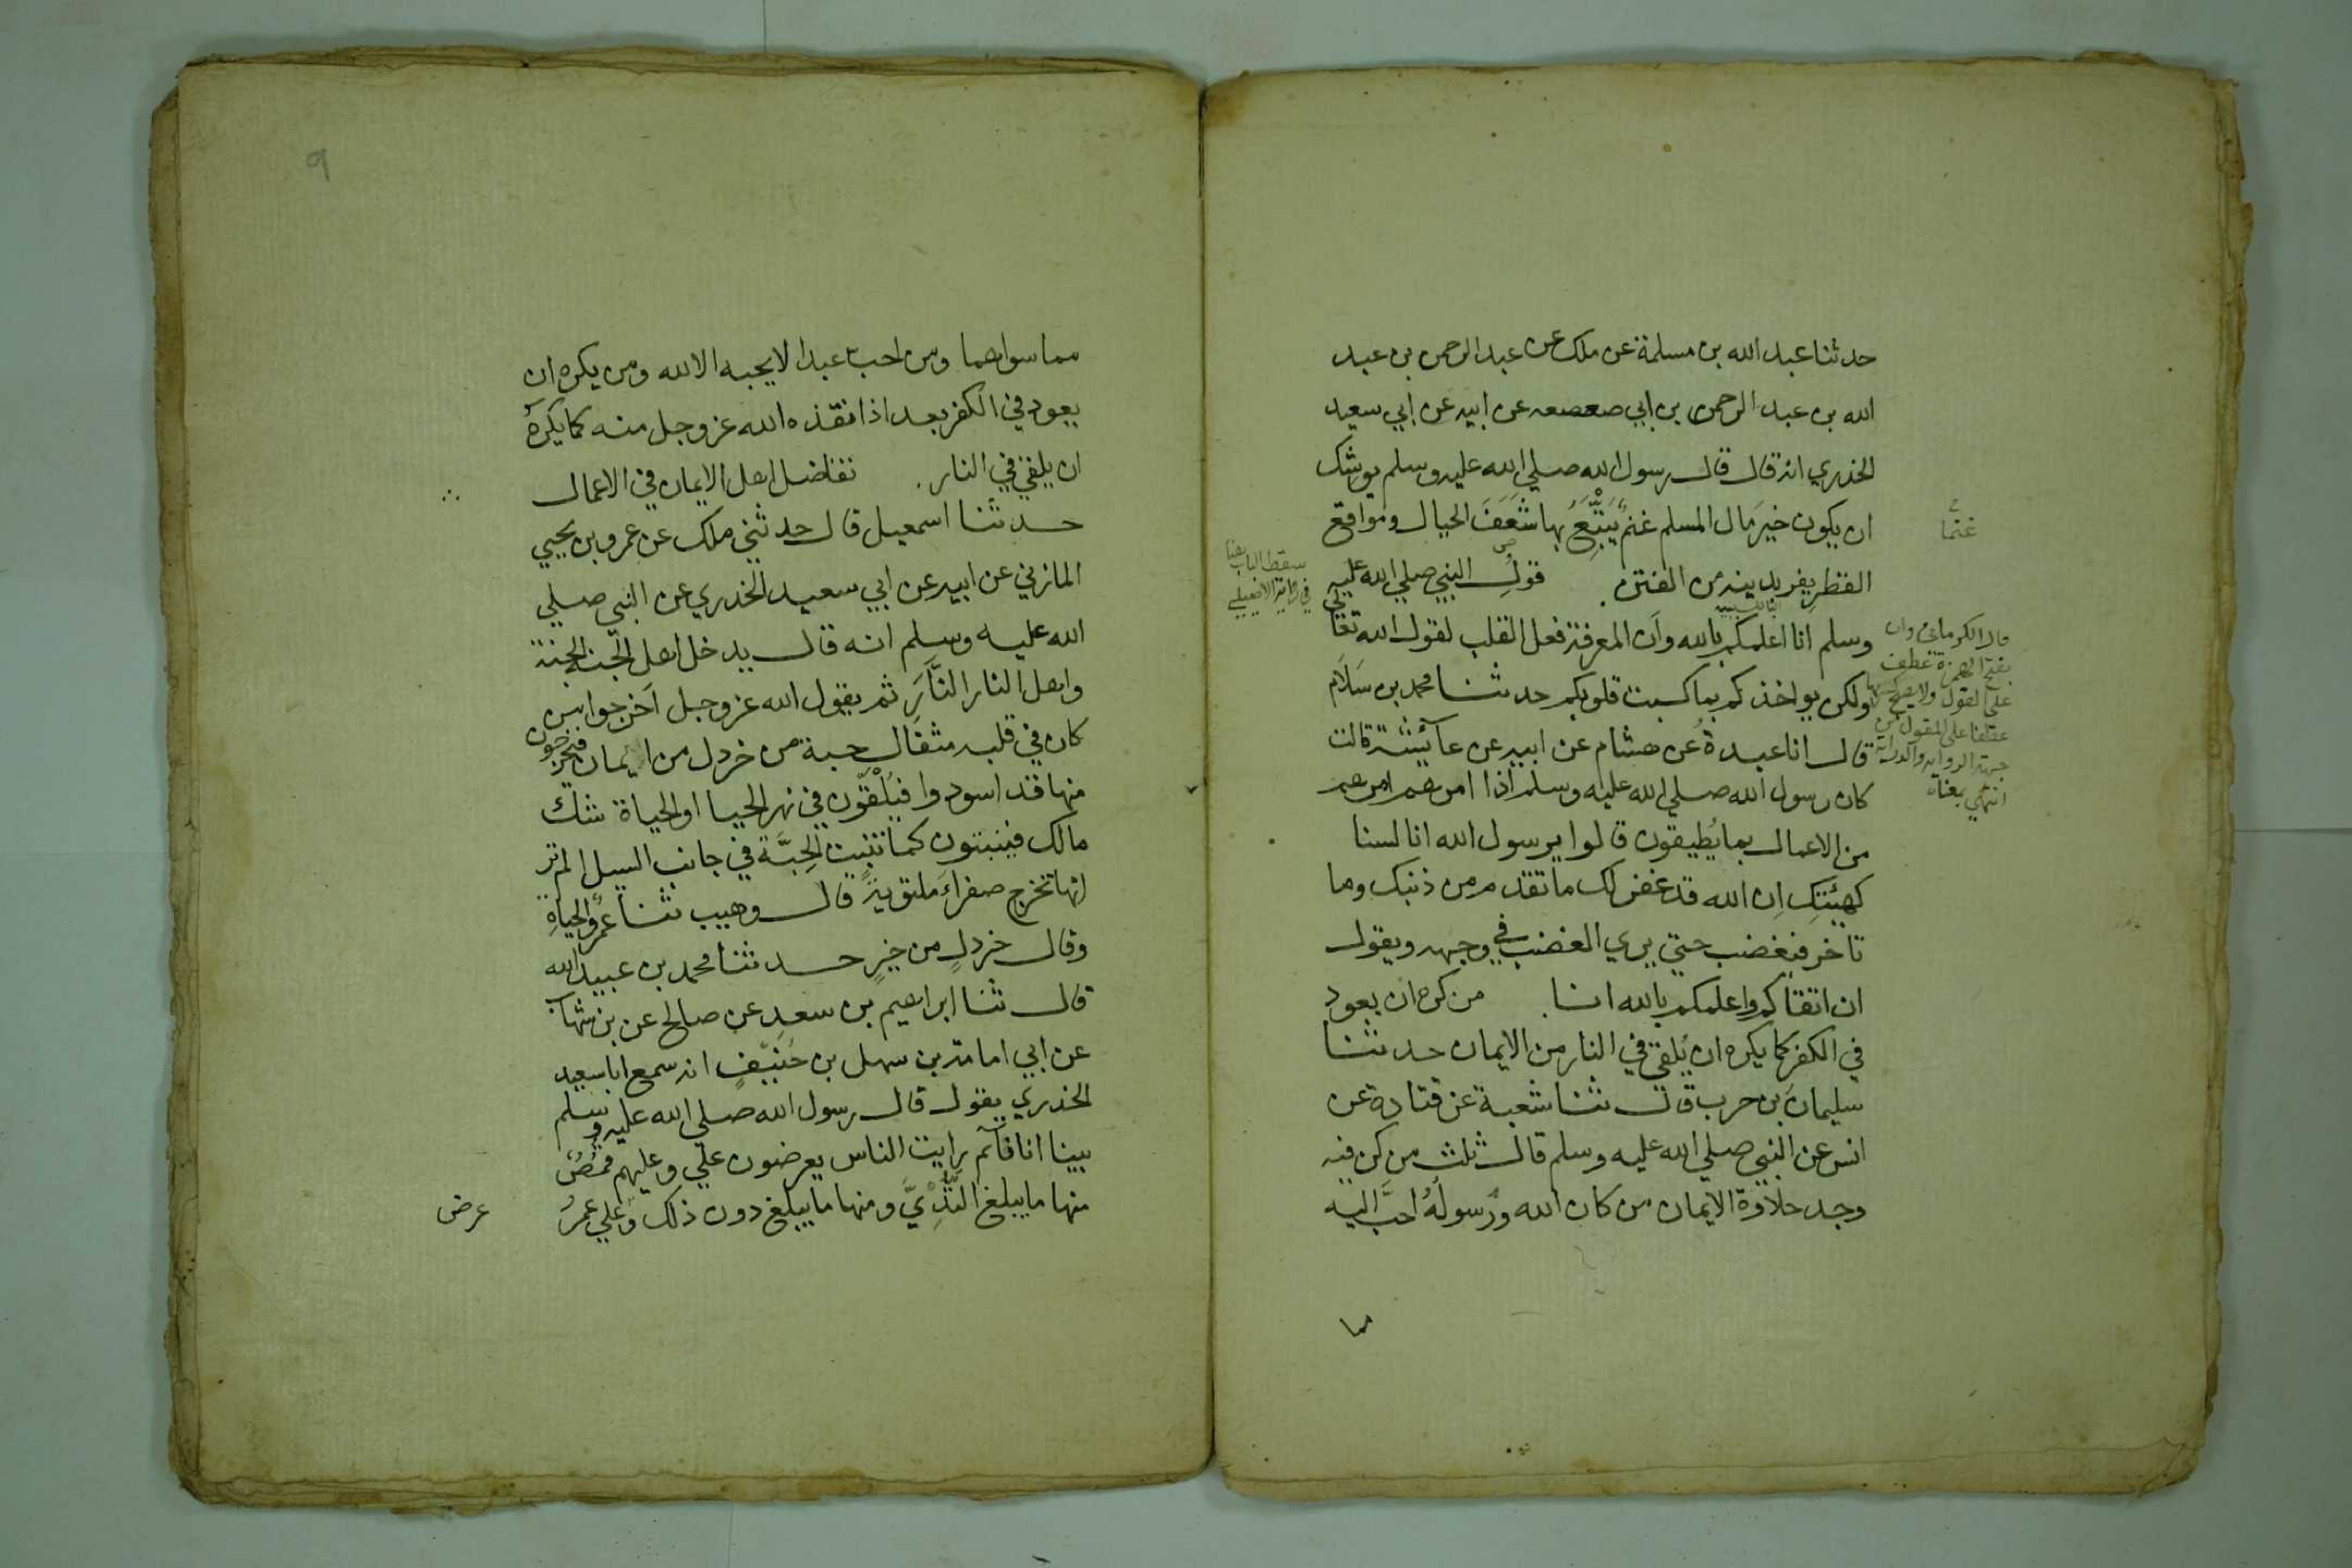 حدثنا عبد الله بن مسلمة عن ملك عن عبد الرحمن بن عبد
الله بن عبد الرحمن بن ابي صعصعه عن ابيه عن ابي سعيد
الخدري انه قال قال رسول الله صلي الله عليه وسلم يوشك
ان يكون خيرَ مال المسلم غنمٌ يَتَّبِعُ بها شَعَفَ الجبال ومواقع
غنمًا
القطر يفر بدينه من الفتن . قولُ النبي صلي الله عليه
سقط الباب هنا
في رواية الاصيلي
وسلم انا اعلمكم بالله وأن المعرفة فعل القلب لقول الله تعالي
قال الكرماني وان
بفتح الهمزة عطف
على القول ولا يصح كسرها
عطفا على المقول من
جهة الرواية والدراية
انتهى بمعناه
ولكن يواخذكم بما كسبت قلوبكم حدثنا محمد بن سَلَام
قال انا عبدةُ عن هشام عن ابيه عن عآئشة قالت
كان رسول الله صلي الله عليه وسلم اذا امرهم امرهم
من الاعمال بما يُطيقون قالوا يرسول الله انا لسنا
كهيئتِك اِن الله قد غفر لك ما تقدم من ذنبك وما
تاخر فيغضب حتي يري الغضب في وجهه ويقول
ان اتقاكم واعلمكم بالله انا . من كره ان يعود
في الكفر كما يكره ان يُلقي في النار من الايمان حدثنا
سليمانَ بن حرب قال ثنا شعبة عن قتادة عن
انس عن النبي صلي الله عليه وسلم قال ثلث من كن فيه
وجد حلاوة الايمان من كان الله ورُسولُهُ احبَّ اليه
مما
٩
مما سواهما ومن احب عبدا لا يحبه الا لله ومن يكره ان
يعود في الكفر بعد اذ انقذه الله عز وجل منه كما يكرهُ
ان يلقي في النار . تفاضل اهل الايمان في الاعمال
حدثنا اسمعيل قال حدثني ملك عن عمرو بن يحيي
المازني عن ابيه عن ابي سعيد الخدري عن النبي صلي
الله عليه وسلم انه قال يدخل اهل الجنة الجنة
واهل النار النَّارَ ثم يقول الله عز وجل أخرجوا من
كان في قلبه مثقال حبة من خردل من ايمان فيخرجون
منها قد اسودوا فيُلْقَوْن في نهر الحيا او الحياة شك
مالك فينبتون كما تنبت الحِبَّة في جانب السيل الم تر
انها تخرج صفراءَ ملتويةً قال وهيب ثنا عمرٌو الحياةِ
وقال خردلٍ من خيرٍ حدثنا محمد بن عبيد الله
قال ثنا ابراهيم بن سعدٍ عن صالح عن بن شهاب
عن ابي امامة بن سهل بن حُنَيفٍ انه سمع ابا سعيد
الخدري يقول قال رسول الله صلي الله عليه وسلم
بينا انا قآئم رايت الناس يعرضون علي وعليهم قُمُصٌ
منها ما يبلغ الثُّدِيَّ ومنها ما يبلغ دون ذلك وعلي عمرُ
عرض